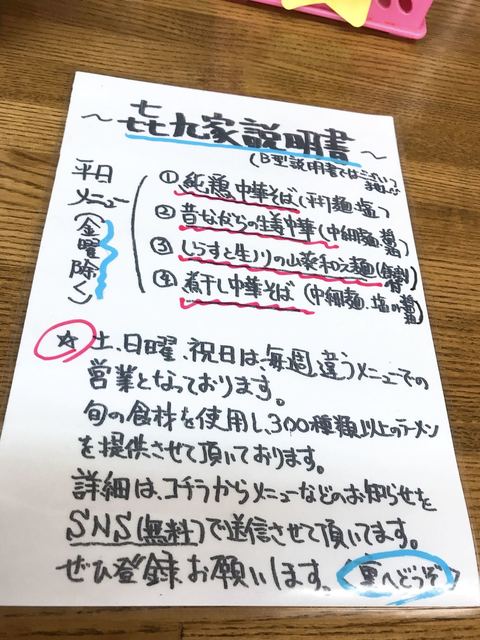 ～㐂九家説明書～
(B型説明書ではございません)
平日メニュー(金曜除く)
①純鶏中華そば(平打麺・塩)
②昔ながらの生姜中華(中細麺・醤油)
③しらすと生ノリの山菜和え麺
④煮干し中華そば(中細麺、塩or醤油)
☆土、日曜、祝日は、毎週、違うメニューでの
営業となっております。
旬の食材を使用し、300種類以上のラーメン
を提供させて頂いております。
詳細は、コチラからメニューなどのお知らせを
SNS(無料)で送信させて頂いてます。
ぜひ登録お願いします。(裏へどうぞ)